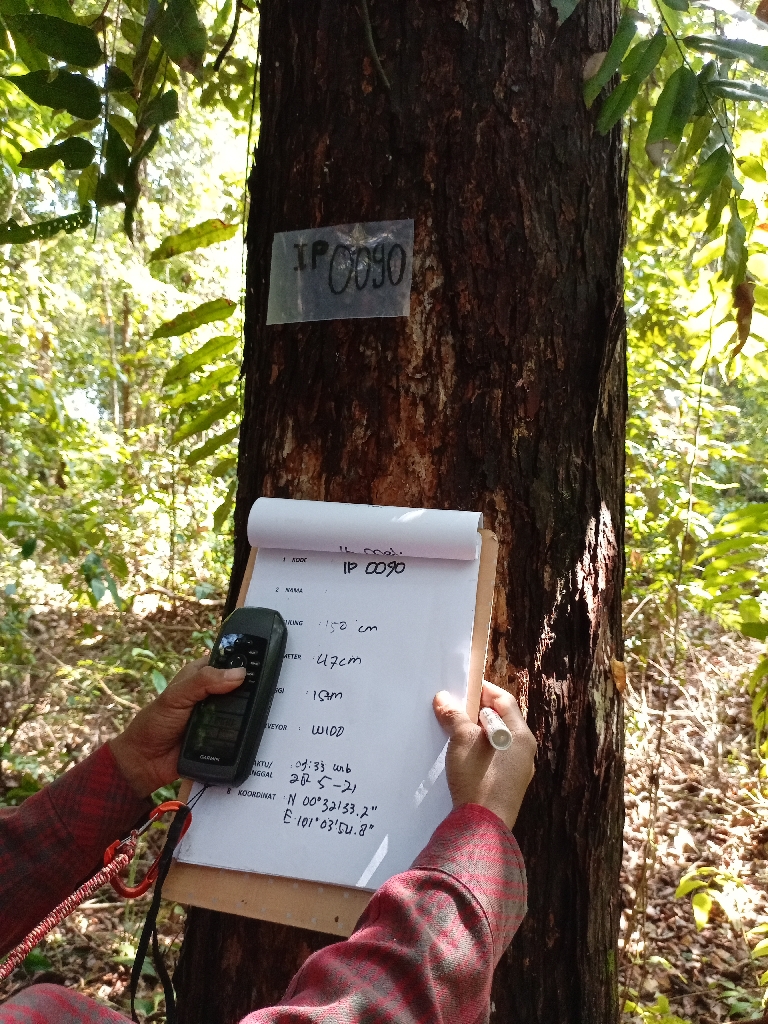 IP 0090
1 KODE : IP 0090
2 NAMA :
LILING : 150 cm
METER : 47cm
GGI : 15m
VEYOR : W100
AKTU/ : 09:33 wib
NGGAL 5-21
8 KOORDINAT : N 00°32'33.2"
E 101°03'54.8"
GARMIN